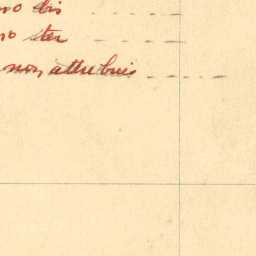 no bis
no ter
non attribués